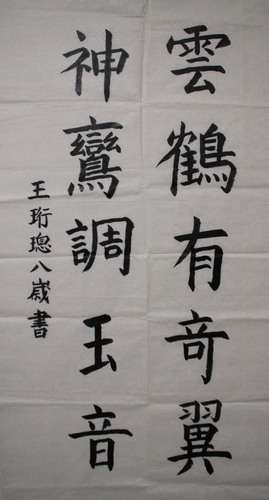 雲鶴有奇翼
神鸞調玉音
王珩璁八歲書